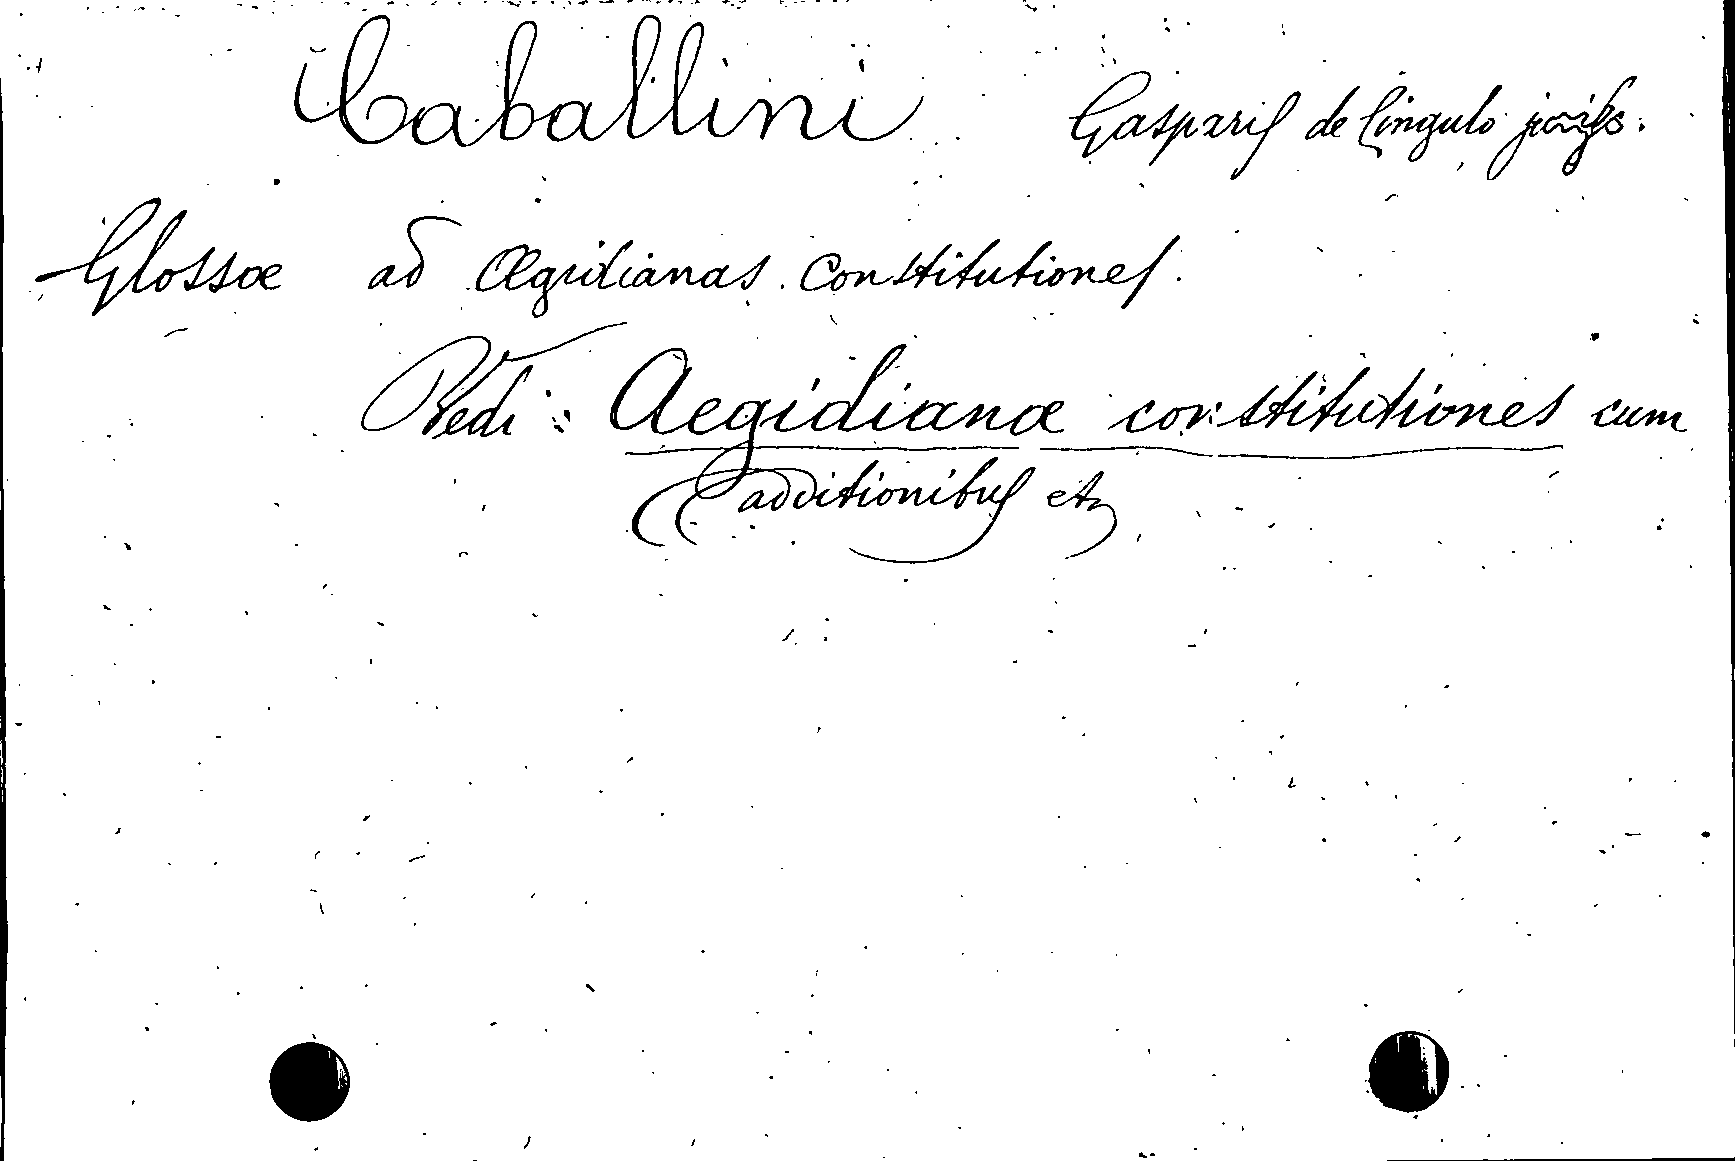 Caballini Gasparis de Cingulo
Glossæ ad Ægidianas Constitutiones.
Vedi: Aegidianæ constitutiones cum
additionibus etc